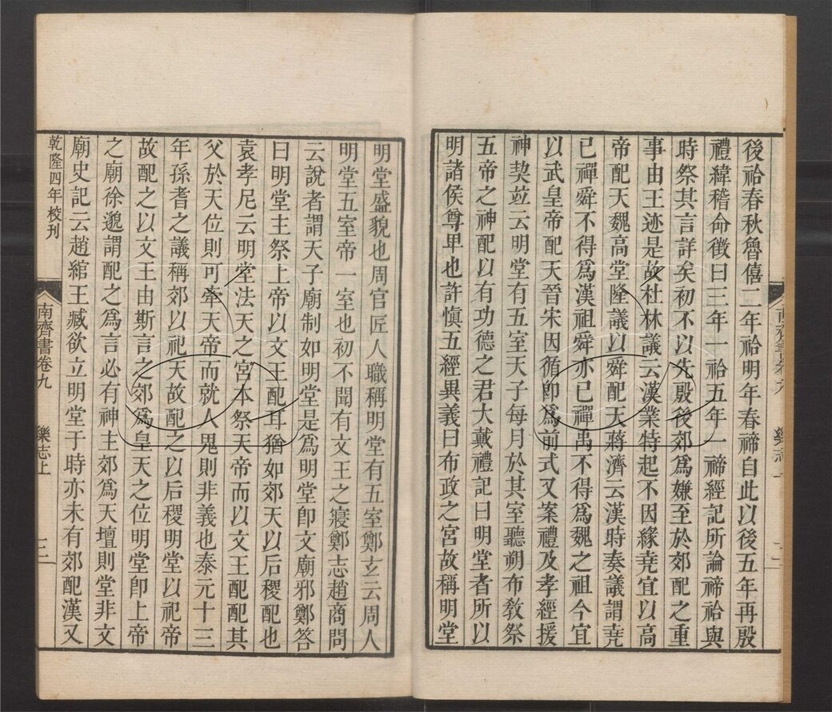 後祫春秋魯僖二年祫明年春禘自此以後五年再殷
禮緯稽命徵曰三年一祫五年一禘經記所論禘祫與
時祭其言詳矣初不以先殷後郊爲嫌至於郊配之重
事由王迹是故杜林議云漢業特起不因緣堯宜以高
帝配天魏高堂隆議以舜配天蔣濟云漢時奏議謂堯
已禪舜不得爲漢祖舜亦已禪禹不得爲魏之祖今宜
以武皇帝配天晉宋因循卽爲前式又案禮及孝經援
神契竝云明堂有五室天子每月於其室聽朔布敎祭
五帝之神配以有功德之君大戴禮記曰明堂者所以
明諸侯尊卑也許愼五經異義曰布政之宮故稱明堂
明堂盛貌也周官匠人職稱明堂有五室鄭玄云周人
明堂五室帝一室也初不聞有文王之寢鄭志趙商問
云說者謂天子廟制如明堂是爲明堂卽文廟邪鄭答
曰明堂主祭上帝以文王配耳猶如郊天以后稷配也
袁孝尼云明堂法天之宮本祭天帝而以文王配配其
父於天位則可牽天帝而就人鬼則非義也泰元十三
年孫耆之議稱郊以祀天故配之以后稷明堂以祀帝
故配之以文王由斯言之郊爲皇天之位明堂卽上帝
之廟徐邈謂配之爲言必有神主郊爲天壇則堂非文
廟史記云趙綰王臧欲立明堂于時亦未有郊配漢又
乾隆四年校刊
南齊書卷九
樂志上
三